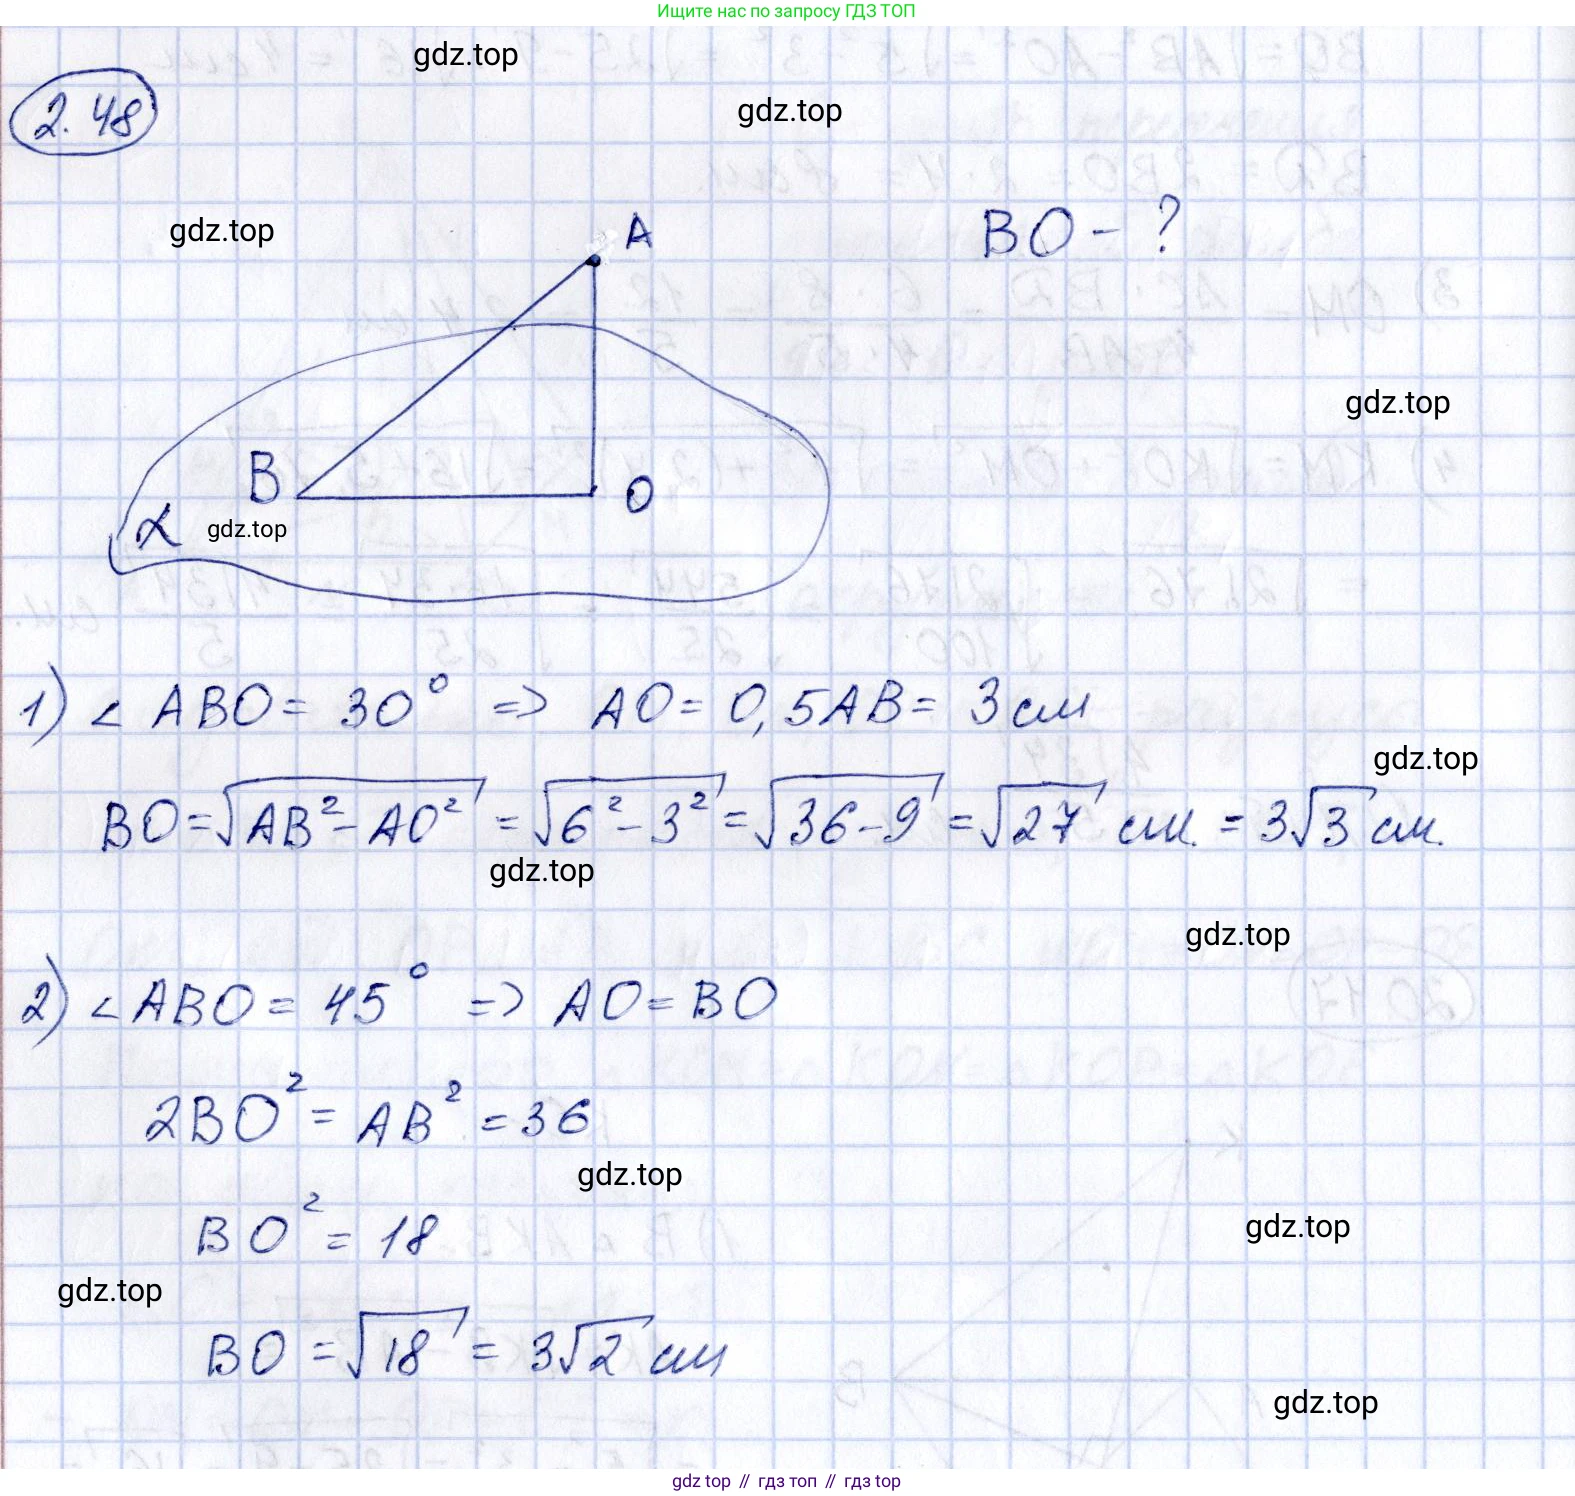 Ищите нас по запросу ГДЗ ТОП
gdz.top
2.48
gdz.top
gdz.top
A
BO - ?
gdz.top
B
O
α
gdz.top
1) ∠ ABO = 30° => AO = 0,5AB = 3 см
gdz.top
BO = √(AB² - AO²) = √(6² - 3²) = √(36 - 9) = √27 см. = 3√3 см.
gdz.top
gdz.top
2) ∠ ABO = 45° => AO = BO
2BO² = AB² = 36
gdz.top
BO² = 18
gdz.top
gdz.top
BO = √18 = 3√2 см
gdz.top
gdz top // гдз топ // гдз top